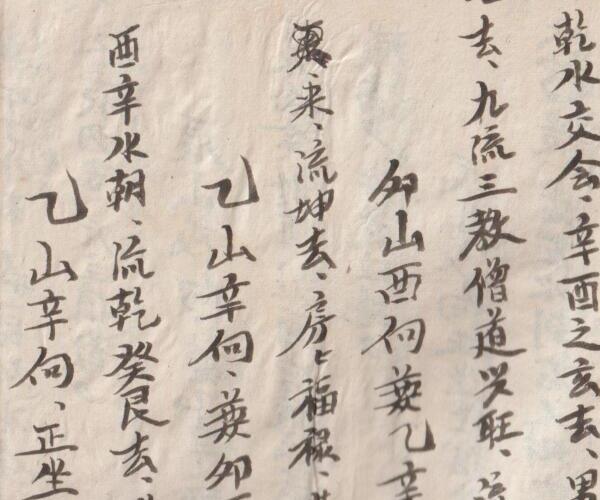 乾水交会、辛酉之亥去、男
去、九流三教僧道兴旺、流
卯山酉向兼乙辛
来、流坤去、房々福禄、
乙山辛向、兼卯酉
酉辛水朝、流乾癸艮去、
乙山辛向、正坐